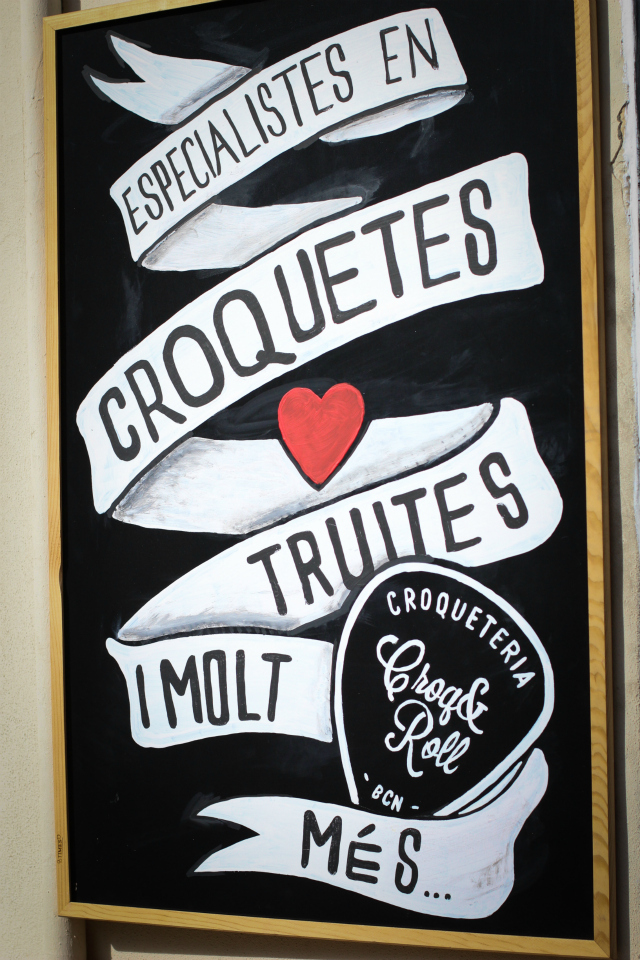 ESPECIALISTES EN
CROQUETES
TRUITES
I MOLT
CROQUETERIA
Croq&
Roll
- BCN -
MÉS...